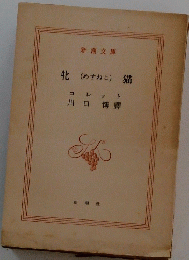 新潮文庫
牝(めすねこ)猫
コレット
川口博譯
新潮社